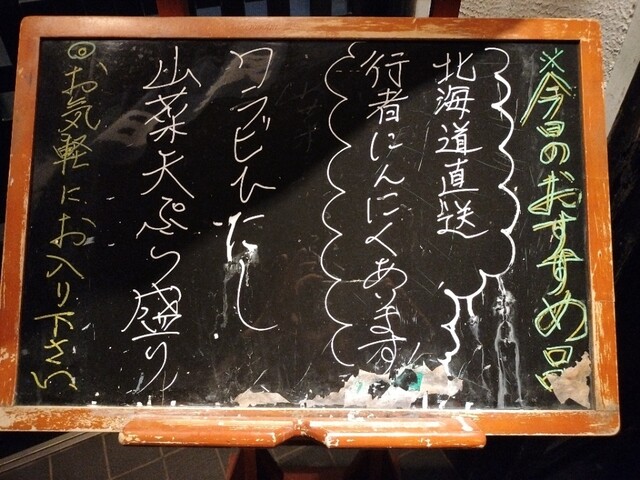 ※今日のおすすめ品
北海道直送
行者にんにくあります
ワラビひたし
山菜天ぷら盛り
◎お気軽にお入り下さい